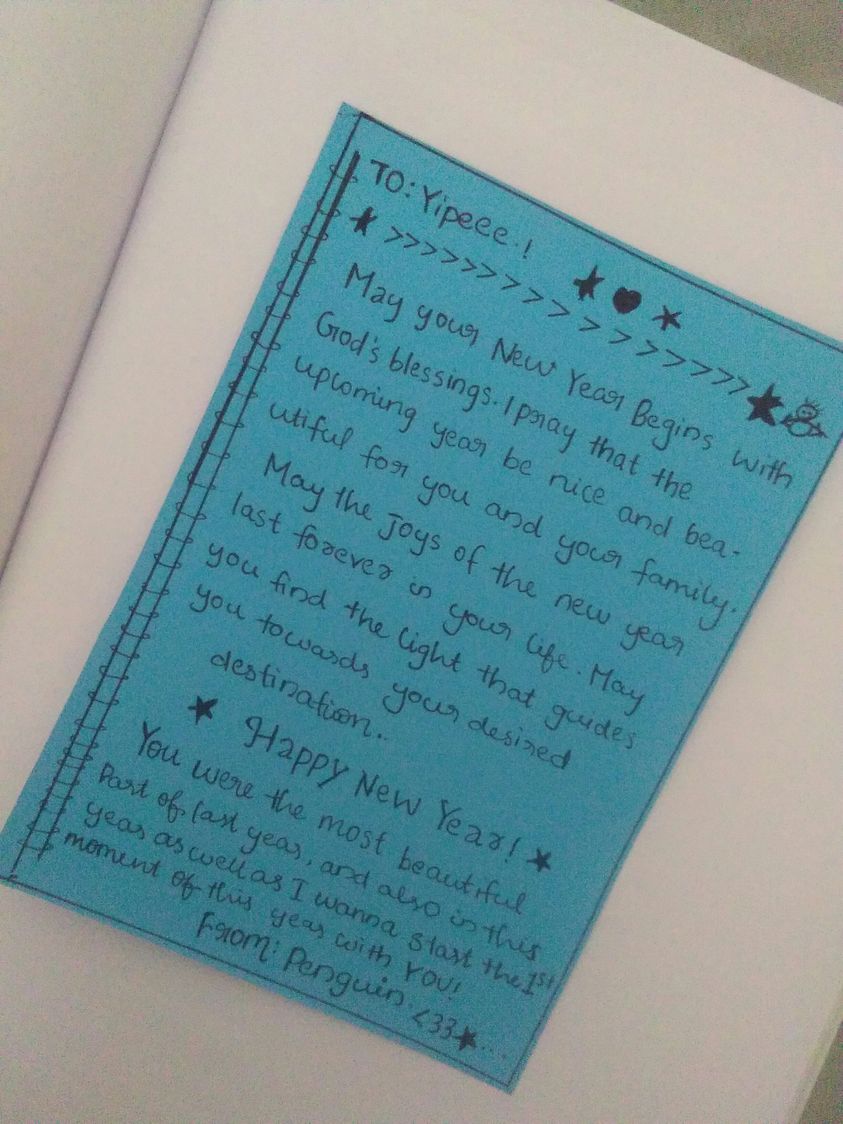 TO: Yipeee.!
★ ♥ ★
★ >>>>>>>>>>>>>>>>>>> ★
May your New Year Begins with
God's blessings. I pray that the
upcoming year be nice and bea-
utiful for you and your family.
May the joys of the new year
last forever in your life. May
you find the light that guides
you towards your desired
destination..
★ Happy New Year! ★
You were the most beautiful
Part of last year, and also in this
year as well as I wanna start the 1st
moment of this year with YOU!
From: Penguin. <33★...